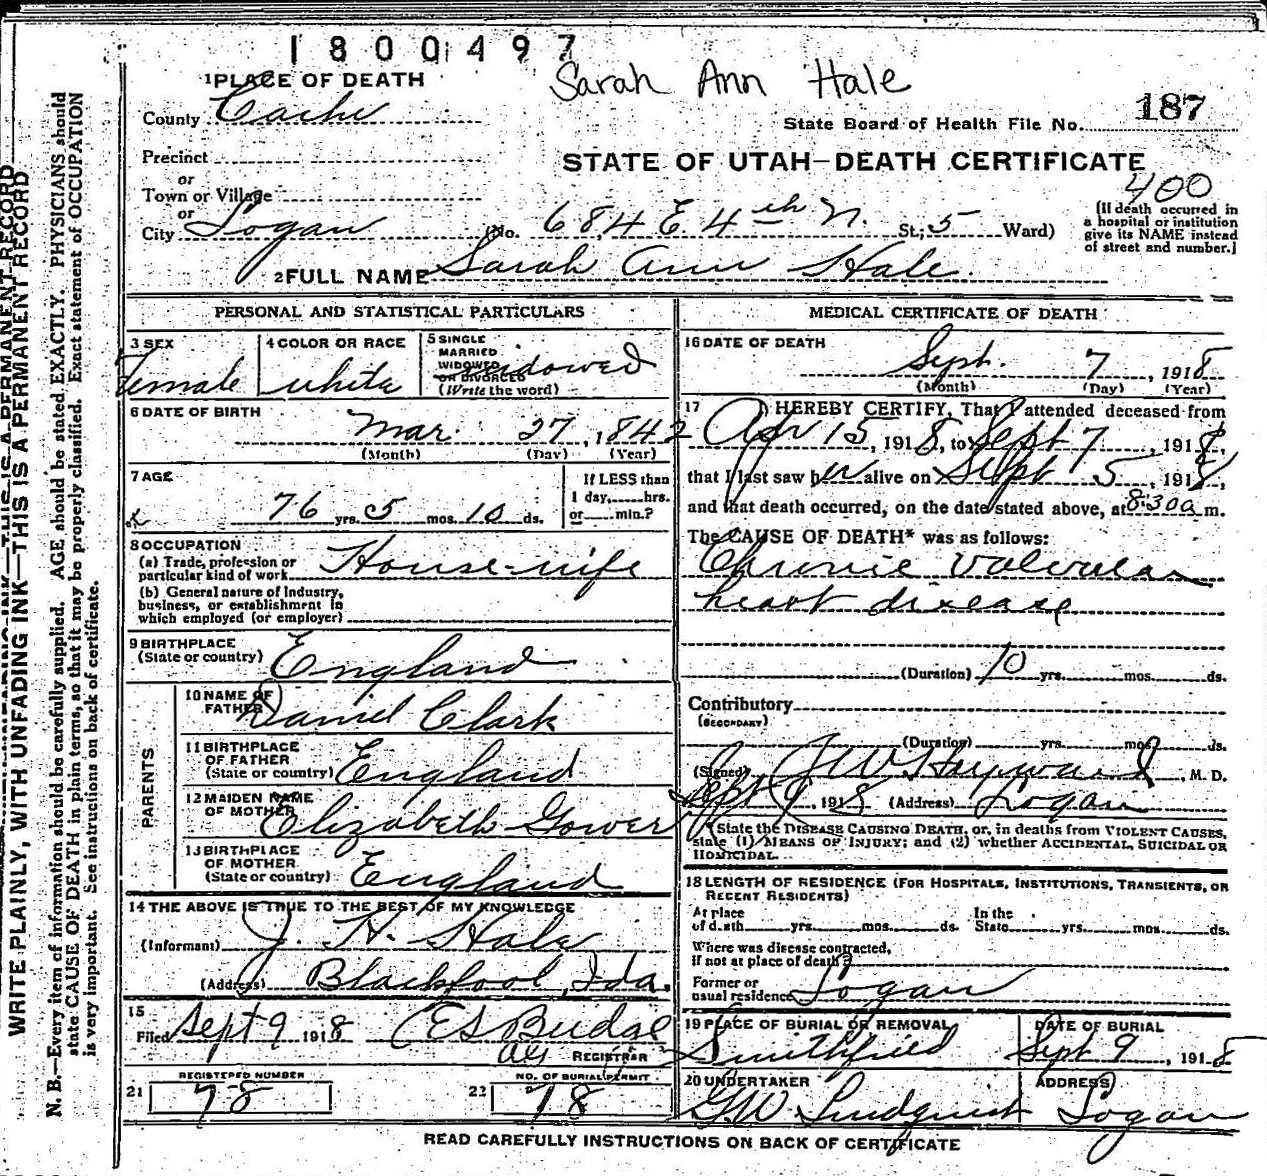 1800497
Sarah Ann Hale
1 PLACE OF DEATH
County Cache
187
State Board of Health File No.
Precinct
STATE OF UTAH—DEATH CERTIFICATE
or
Town or Village
400
or
City Logan (No. 684 E. 4th N. St.; 5 Ward)
(If death occurred in
a hospital or institution
give its NAME instead
of street and number.)
2 FULL NAME Sarah Ann Hale.
PERSONAL AND STATISTICAL PARTICULARS
3 SEX
Female
4 COLOR OR RACE
white
5 SINGLE
MARRIED
WIDOWED
OR DIVORCED
(Write the word)
widowed
6 DATE OF BIRTH
Mar. 27, 1842
(Month) (Day) (Year)
7 AGE
76 yrs. 5 mos. 10 ds.
If LESS than
1 day, hrs.
or min.?
8 OCCUPATION
(a) Trade, profession or
particular kind of work House-wife
(b) General nature of Industry,
business, or establishment in
which employed (or employer)
9 BIRTHPLACE
(State or country) England
PARENTS
10 NAME OF
FATHER Daniel Clark
11 BIRTHPLACE
OF FATHER
(State or country) England
12 MAIDEN NAME
OF MOTHER Elizabeth Gower
13 BIRTHPLACE
OF MOTHER
(State or country) England
14 THE ABOVE IS TRUE TO THE BEST OF MY KNOWLEDGE
(Informant) J. H. Hale
(Address) Blackfoot, Ida.
15
Filed Sept 9 1918
REGISTRAR
REGISTERED NUMBER
21 78
NO. OF BURIAL PERMIT
22 78
MEDICAL CERTIFICATE OF DEATH
16 DATE OF DEATH
Sept. 7, 1918
(Month) (Day) (Year)
17 I HEREBY CERTIFY, That I attended deceased from
Apr 15, 1918, to Sept 7, 1918,
that I last saw her alive on Sept 5, 1918,
and that death occurred, on the date stated above, at 8:30a m.
The CAUSE OF DEATH* was as follows:
Chronic Valvular
heart disease
(Duration) 10 yrs. mos. ds.
Contributory
(SECONDARY)
(Duration) yrs. mos. ds.
(Signed) J W Hayward, M. D.
Sept 9 1918 (Address) Logan
*State the DISEASE CAUSING DEATH, or, in deaths from VIOLENT CAUSES,
state (1) MEANS OF INJURY; and (2) whether ACCIDENTAL, SUICIDAL OR
HOMICIDAL.
18 LENGTH OF RESIDENCE (FOR HOSPITALS, INSTITUTIONS, TRANSIENTS, OR
RECENT RESIDENTS)
At place
of death yrs. mos. ds.
In the
State yrs. mos. ds.
Where was disease contracted,
if not at place of death?
Former or
usual residence Logan
19 PLACE OF BURIAL OR REMOVAL
Smithfield
DATE OF BURIAL
Sept 9, 1918
20 UNDERTAKER
G.W. Lindquist
ADDRESS
Logan
READ CAREFULLY INSTRUCTIONS ON BACK OF CERTIFICATE
WRITE PLAINLY, WITH UNFADING INK—THIS IS A PERMANENT RECORD
N. B.—Every item of information should be carefully supplied. AGE should be stated EXACTLY. PHYSICIANS should
state CAUSE OF DEATH in plain terms, so that it may be properly classified. Exact statement of OCCUPATION
is very important. See instructions on back of certificate.